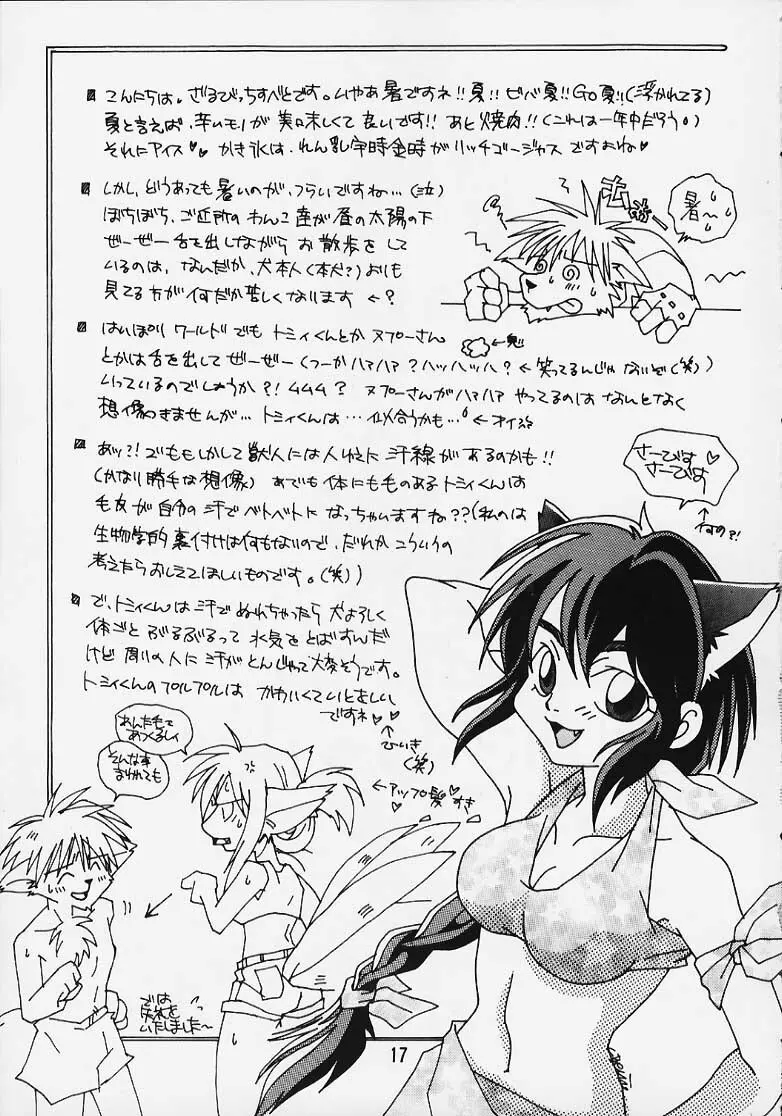 こんにちは。ざるびっちすべとです。いやあ暑ですネ!!夏!!ビバ夏!!Go夏!!(浮かれてる)
夏と言えば、辛いモノが美味しくて良いです!!あと焼肉!!(これは一年中だろう。)
それにアイス♥♥かき氷は、れん乳宇時金時がリッチゴージャスですよね♥
しかし、どうあっても暑いのが、つらいですね…(泣)
ぼちぼち、ご近所のわんこ達が昼の太陽の下
ぜーぜー舌を出しながらお散歩をして
いるのは、なんだか、犬本人(本犬?)よりも
見てる方が何だか苦しくなります ←?
暑〜い
はいぱぁりワールドでもトミィくんとかヌプーさん
とかは舌を出してぜーぜー(つーかハァハァ?ハッハッハ?←笑ってるんじゃないぞ(笑))
いっているのでしょうか?!ムムム?ヌプーさんがハァハァやってるのはなんとなく
想像つきませんが…トミィくんは…似合うかも…。←オイ
あッ?!でももしかして獣人には人ゆえに汗線があるのかも!!
(かなり勝手な想像)あでも体にも毛のあるトミィくんは
毛皮が自分の汗でベトベトになっちゃいますね??(私のは
生物学的裏付けは何もないので、だれかこういうの
考えたらおしえてほしいものです。(笑))
さーびす♥
さーびす
↑何の?!
で、トミィくんは汗でぬれちゃったら犬よろしく
体ごとぶるぶるって水気をとばすんだ
けど周りの人に汗がとんじゃって大変そうです。
トミィくんのプルプルはかわいくていとおしい
ですネ♥♥
↑ひいき(笑)
あんた毛であつくるしく
そんな事言われても
←アップ髪♥すき
では
失礼を
いたしました〜
17